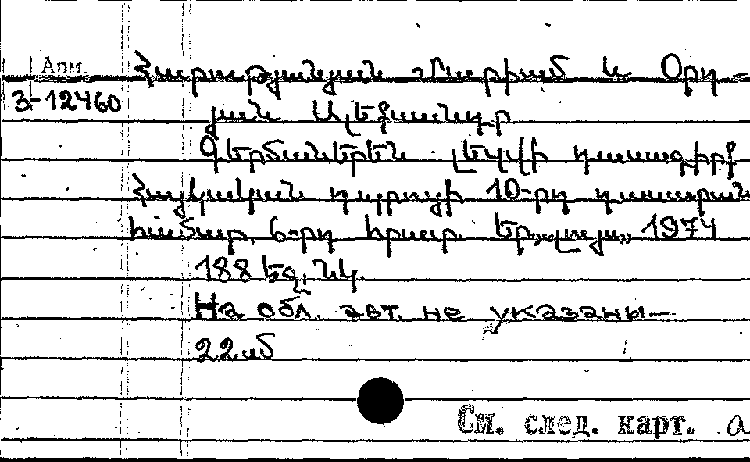 Арм.
Հարությունյան Մարիամ և Օրդ-
3-12460
յան Ալեքսանդր
Գերմաներեն լեզվի դասագիրք
Հայկական դպրոցի 10-րդ դասարան
համար. 6-րդ հրատ. Եր., „Լույս„ 1974
188 եզ, նկ.
На обл. авт. не указаны—
22 սմ
См. след. карт. а